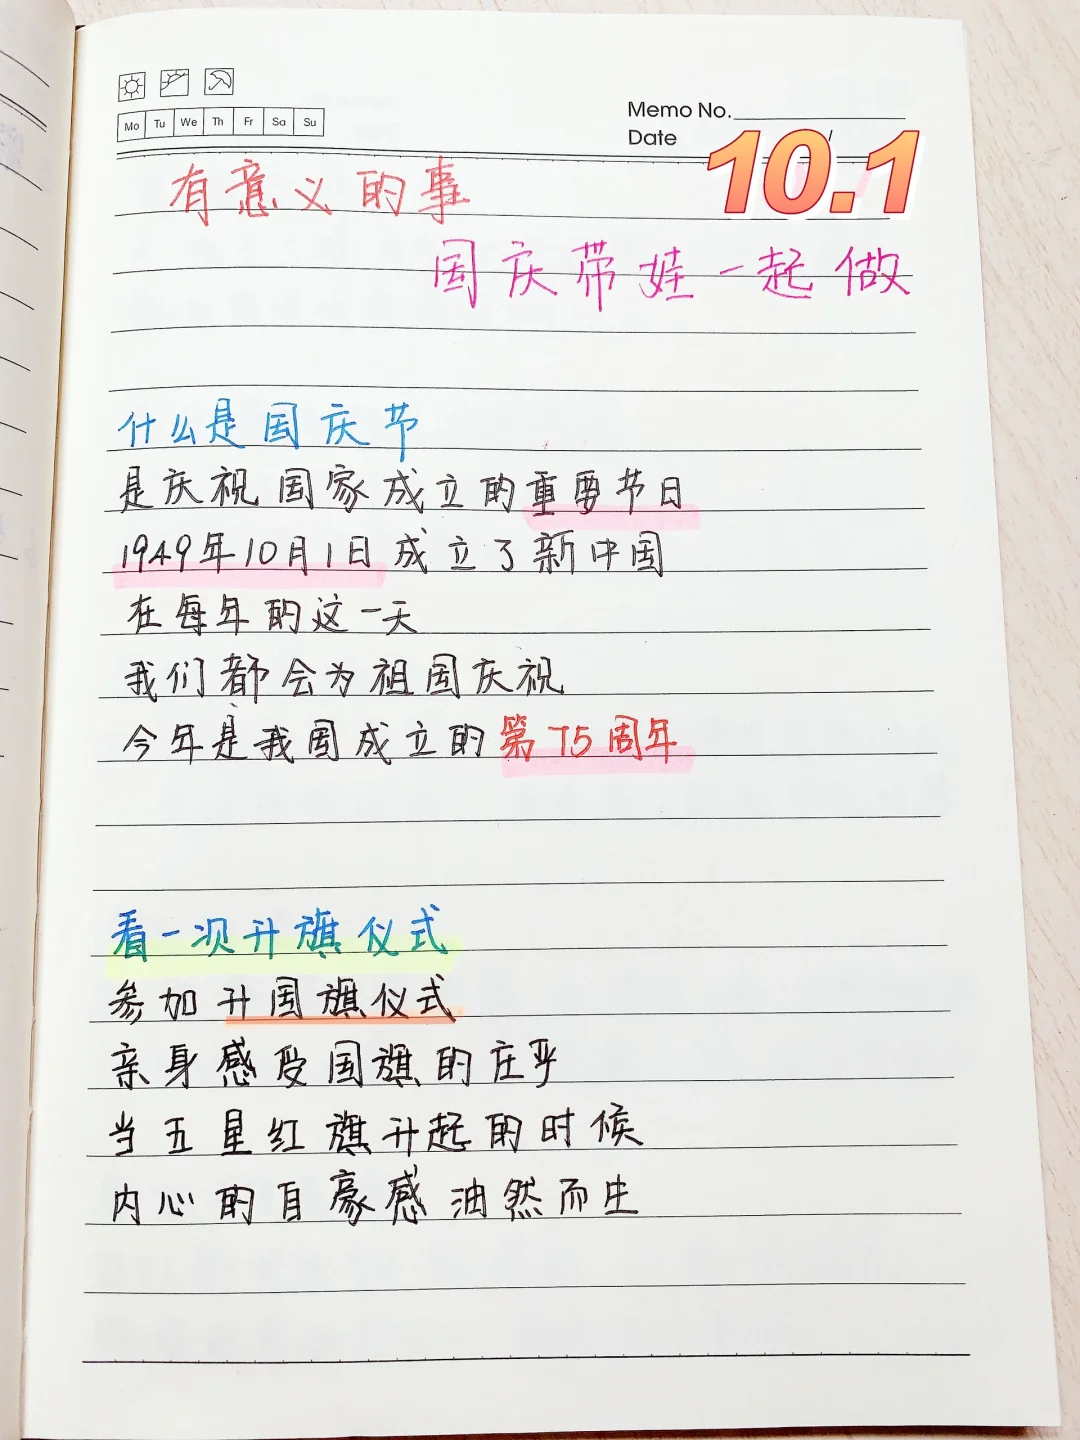 Mo Tu We Th Fr Sa Su
Memo No.
Date /
10.1
有意义的事
国庆带娃一起做
什么是国庆节
是庆祝国家成立的重要节日
1949年10月1日成立了新中国
在每年的这一天
我们都会为祖国庆祝
今年是我国成立的第75周年
看一次升旗仪式
参加升国旗仪式
亲身感受国旗的庄严
当五星红旗升起的时候
内心的自豪感油然而生